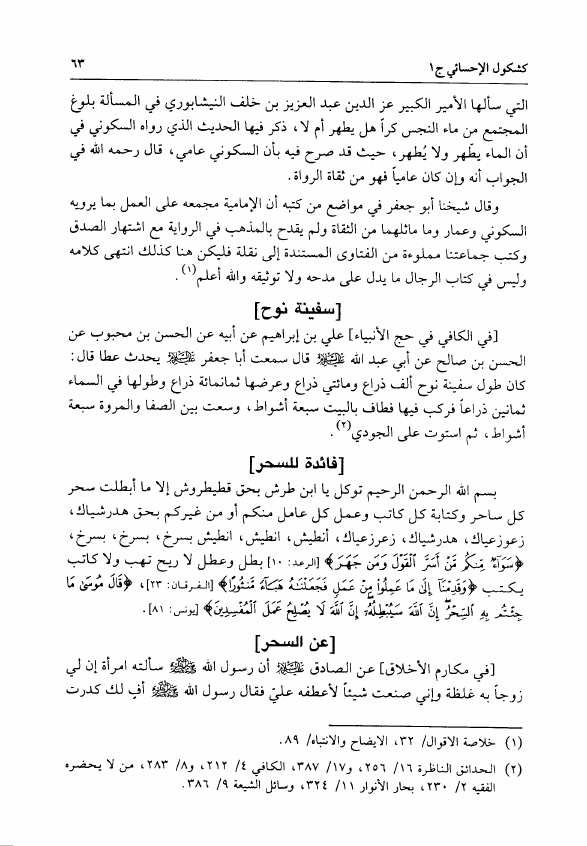 كشكول الإحسائي ج١ ٦٣
التي سألها الأمير الكبير عز الدين عبد العزيز بن خلف النيشابوري في المسألة بلوغ
المجتمع من ماء النجس كراً هل يطهر أم لا، ذكر فيها الحديث الذي رواه السكوني في
أن الماء يطّهر ولا يُطهر، حيث قد صرح فيه بأن السكوني عامي، قال رحمه الله في
الجواب أنه وإن كان عامياً فهو من ثقاة الرواة.
وقال شيخنا أبو جعفر في مواضع من كتبه أن الإمامية مجمعه على العمل بما يرويه
السكوني وعمار وما ماثلهما من الثقاة ولم يقدح بالمذهب في الرواية مع اشتهار الصدق
وكتب جماعتنا مملوءة من الفتاوى المستندة إلى نقلة فليكن هنا كذلك انتهى كلامه
وليس في كتاب الرجال ما يدل على مدحه ولا توثيقه والله أعلم(١).
[سفينة نوح]
[في الكافي في حج الأنبياء] علي بن إبراهيم عن أبيه عن الحسن بن محبوب عن
الحسن بن صالح عن أبي عبد الله عليه السلام قال سمعت أبا جعفر عليه السلام يحدث عطا قال:
كان طول سفينة نوح ألف ذراع ومائتي ذراع وعرضها ثمانمائة ذراع وطولها في السماء
ثمانين ذراعاً فركب فيها فطاف بالبيت سبعة أشواط، وسعت بين الصفا والمروة سبعة
أشواط، ثم استوت على الجودي(٢).
[فائدة للسحر]
بسم الله الرحمن الرحيم توكل يا ابن طرش بحق قطيطروش إلا ما أبطلت سحر
كل ساحر وكتابة كل كاتب وعمل كل عامل منكم أو من غيركم بحق هدرشياك،
زعوزعياك، هدرشياك، زعرزعياك، أنطيش، انطيش، انطيش بسرخ، بسرخ، بسرخ،
﴿سَوَآءٌ مِّنكُم مَّنْ أَسَرَّ ٱلْقَوْلَ وَمَن جَهَرَ﴾ [الرعد: ١٠] بطل وعطل لا ريح تهب ولا كاتب
يكتب ﴿وَقَدِمْنَآ إِلَىٰ مَا عَمِلُوا۟ مِنْ عَمَلٍ فَجَعَلْنَٰهُ هَبَآءً مَّنثُورًا﴾ [الفرقان: ٢٣]، ﴿قَالَ مُوسَىٰ مَا
جِئْتُم بِهِ ٱلسِّحْرُ إِنَّ ٱللَّهَ سَيُبْطِلُهُۥٓ إِنَّ ٱللَّهَ لَا يُصْلِحُ عَمَلَ ٱلْمُفْسِدِينَ﴾ [يونس: ٨١].
[عن السحر]
[في مكارم الأخلاق] عن الصادق عليه السلام أن رسول الله ﷺ سألته امرأة إن لي
زوجاً به غلظة وإني صنعت شيئاً لأعطفه عليّ فقال رسول الله ﷺ أفٍ لك كدرت
(١) خلاصة الاقوال/ ٣٢، الايضاح والانتباه/ ٨٩.
(٢) الحدائق الناظرة ١٦/ ٢٥٦، و١٧/ ٣٨٧، الكافي ٤/ ٢١٢، و٨/ ٢٨٣، من لا يحضره
الفقيه ٢/ ٢٣٠، بحار الأنوار ١١/ ٣٢٤، وسائل الشيعة ٩/ ٣٨٦.